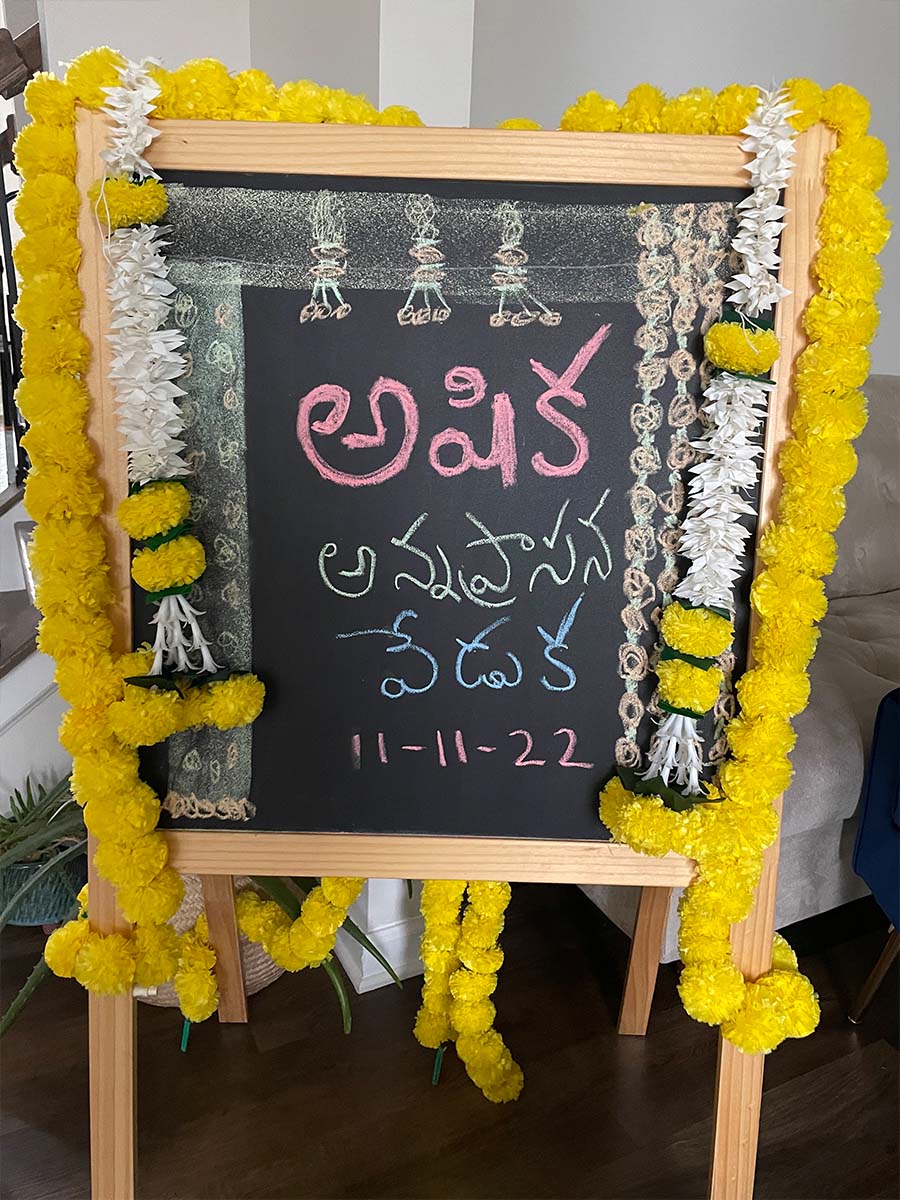 అషిక
అన్నప్రాసన
వేడుక
11-11-22